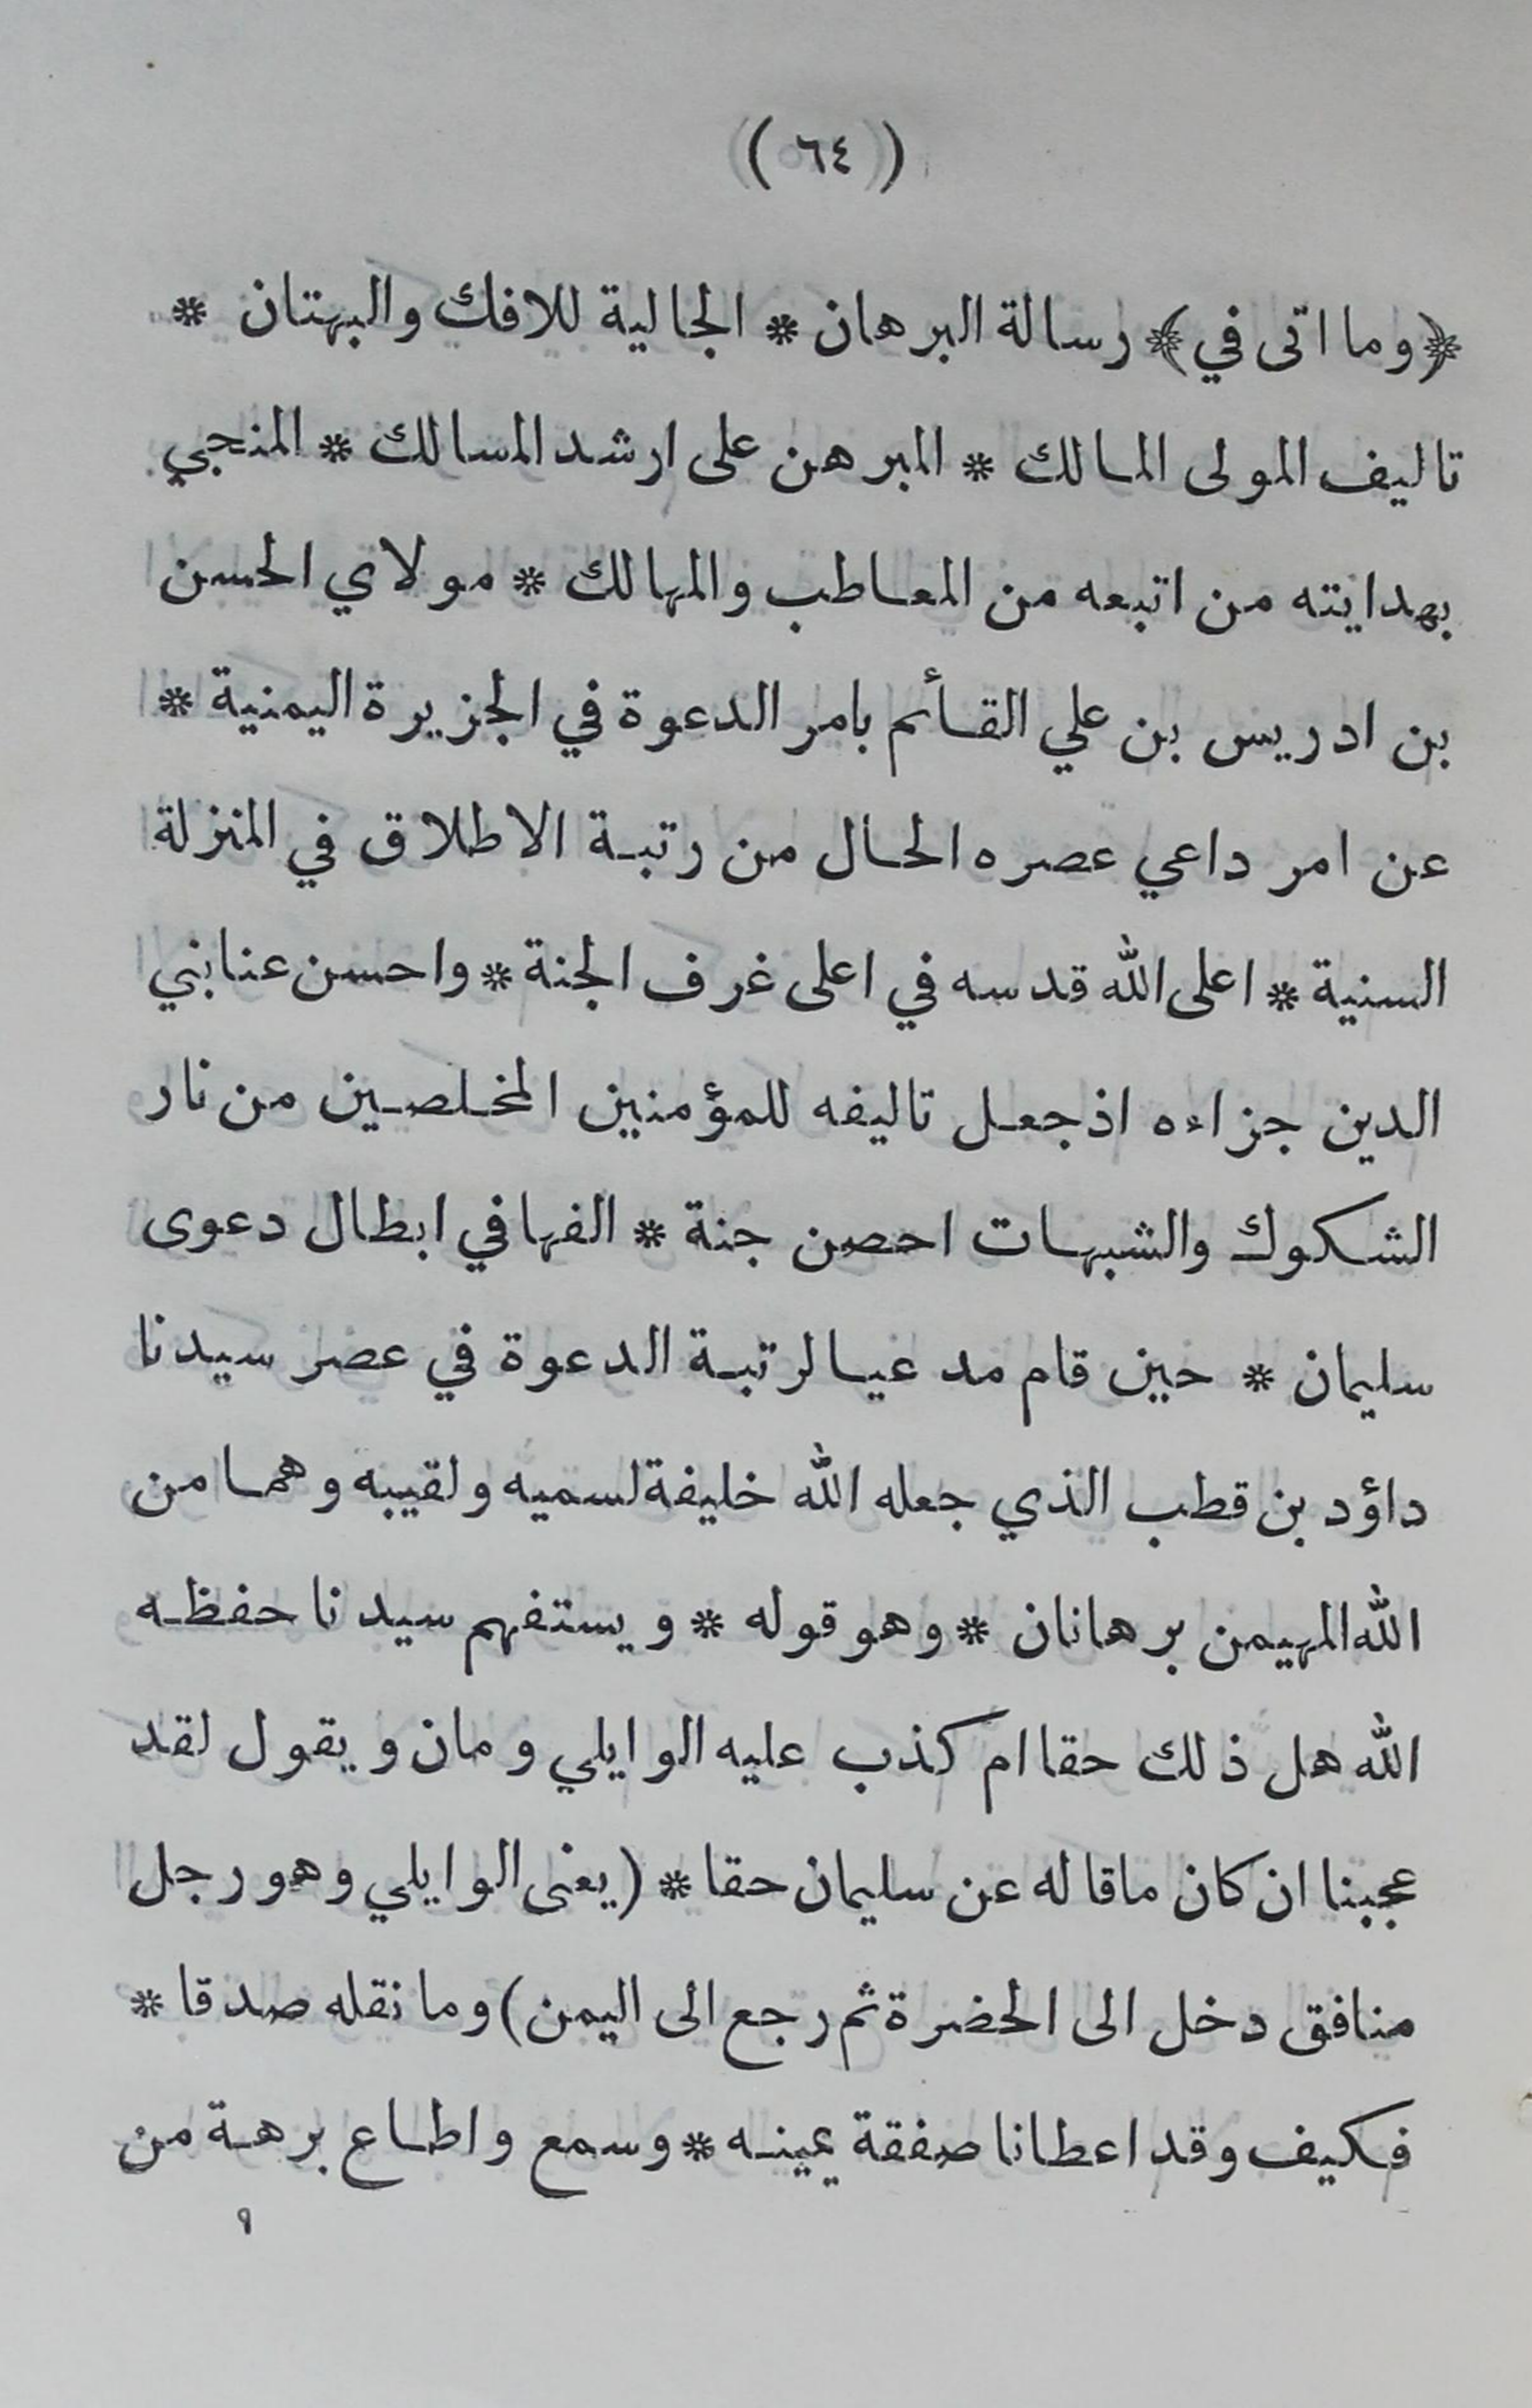 ( ٦٤ )
﴿وما اتى في﴾ رسالة البرهان * الجالية للافك والبهتان *
تاليف المولى المالك * المبرهن على ارشد المسالك * المنجي
بهدايته من اتبعه من المعاطب والمهالك * مولاي الحسن
بن ادريس بن علي القائم بامر الدعوة في الجزيرة اليمنية *
عن امر داعي عصره الحال من رتبة الاطلاق في المنزلة
السنية * اعلى الله قدسه في اعلى غرف الجنة * واحسن عنا بني
الدين جزاءه اذ جعل تاليفه للمؤمنين المخلصين من نار
الشكوك والشبهات احصن جنة * الفها في ابطال دعوى
سليمان * حين قام مدعيا لرتبة الدعوة في عصر سيدنا
داؤد بن قطب الذي جعله الله خليفة لسميه ولقيبه وهما من
الله المهيمن برهانان * وهو قوله * ويستفهم سيدنا حفظه
الله هل ذلك حقا ام كذب عليه الوايلي ومان ويقول لقد
عجبنا ان كان ما قاله عن سليمان حقا * (يعنى الوايلي وهو رجل
منافق دخل الى الحضرة ثم رجع الى اليمن) وما نقله صدقا *
فكيف وقد اعطانا صفقة يمينه * وسمع واطاع برهة من
٩